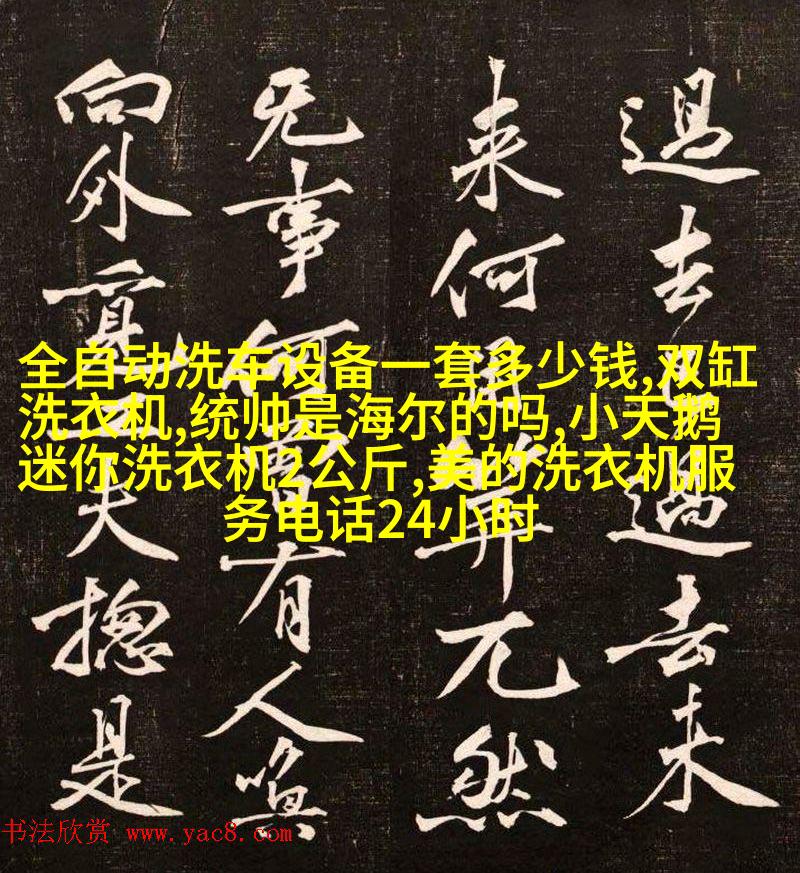 過去過去未
来何筭兀然
无事何曾有人喚
向外覓工夫摠是
全自动洗车设备一套多少钱,双缸
洗衣机,统帅是海尔的吗,小天鹅
迷你洗衣机2公斤,美的洗衣机服
务电话24小时
书法欣赏 www.yac8.com